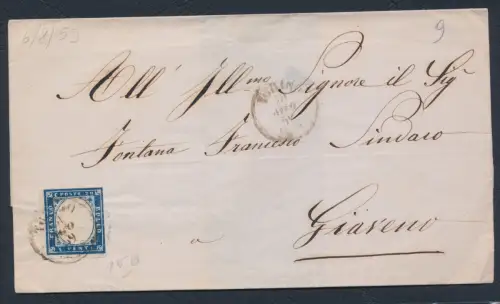 6/8/59
9
All' Ill.mo Signore il Sig.r
Fontana Francesco Sindaco
a Giaveno
FRANCO
C. POSTE 20
BOLLO
150